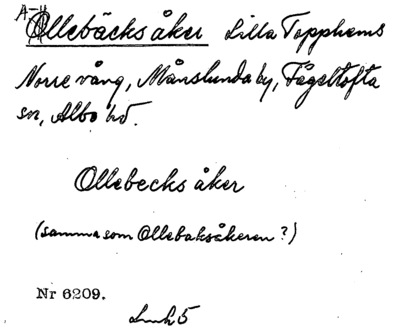 Ollebäcks åker Lilla Topphems
Norre vång, Månslunda by, Fågeltofta
sn, Albo hd.
Ollebecks åker
(samma som Ollebaksåkeren?)
Nr 6209.